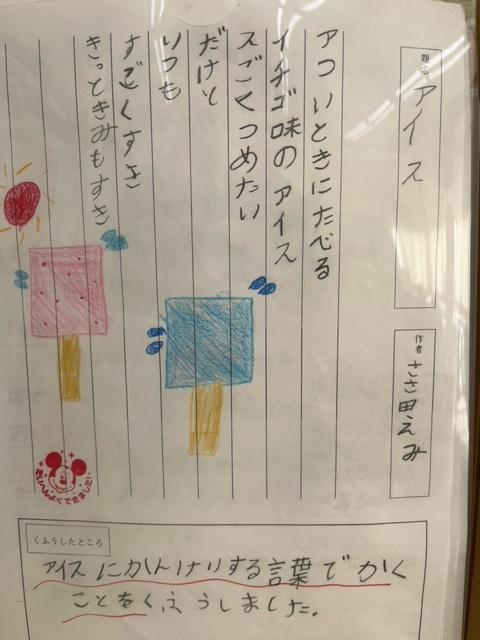 題名
アイス
作者
ささ田えみ
アついときにたべる
イチゴ味のアイス
スごくつめたい
だけど
いつも
すごくすき
きっときみもすき
たいへんよくできました!
くふうしたところ
アイスにかんけりする言葉でかく
ことをくふうしました。